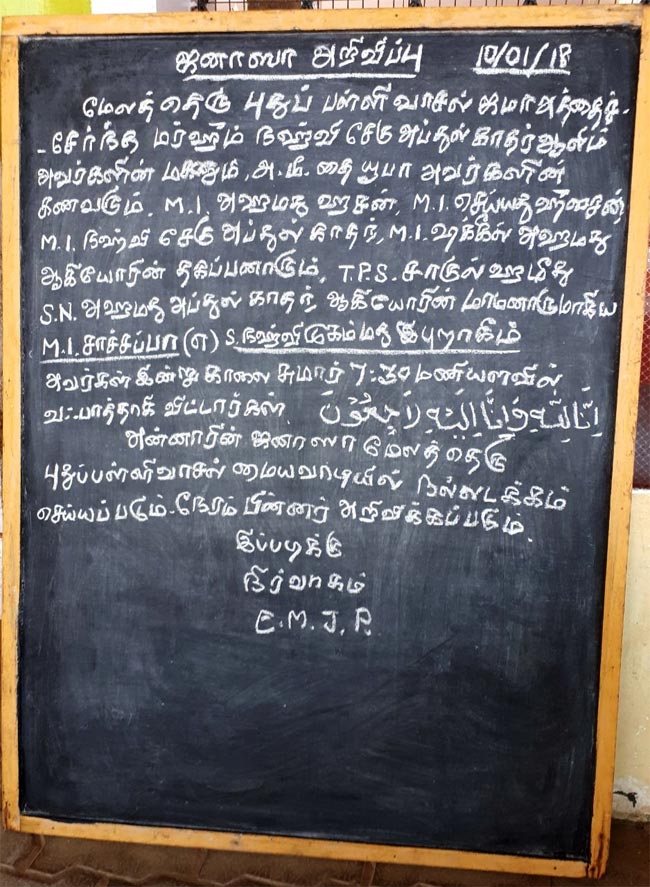 ஜனாஸா அறிவிப்பு 10/01/18
மேலத் தெரு புதுப் பள்ளி வாசல் ஜமாஅத்தைச்
- சேர்ந்த மர்ஹூம் நஹ்வி சேகு அப்துல் காதர் ஆலிம்
அவர்களின் மகனும், அ.மீ. தையூபா அவர்களின்
கணவரும், M.I. அஹமது ஹசன், M.I. செய்யது ஹூசைன்,
M.I. நஹ்வி சேகு அப்துல் காதர், M.I. ஷக்கீல் அஹமது
ஆகியோரின் தகப்பனாரும், T.P.S. சாகுல் ஹமீது
S.N. அஹமது அப்துல் காதர், ஆகியோரின் மாமனாருமாகிய
M.I. சாச்சப்பா (எ) S. நஹ்வி முகம்மது இபுறாகீம்
அவர்கள் இன்று காலை சுமார் 7:30 மணியளவில்
வஃபாத்தாகி விட்டார்கள். إنا لله وإنا إليه راجعون
அன்னாரின் ஜனாஸா மேலத் தெரு
புதுப்பள்ளிவாசல் மையவாடியில் நல்லடக்கம்
செய்யப்படும். நேரம் பின்னர் அறிவிக்கப்படும்.
இப்படிக்கு
நிர்வாகம்
E.M.J.P.